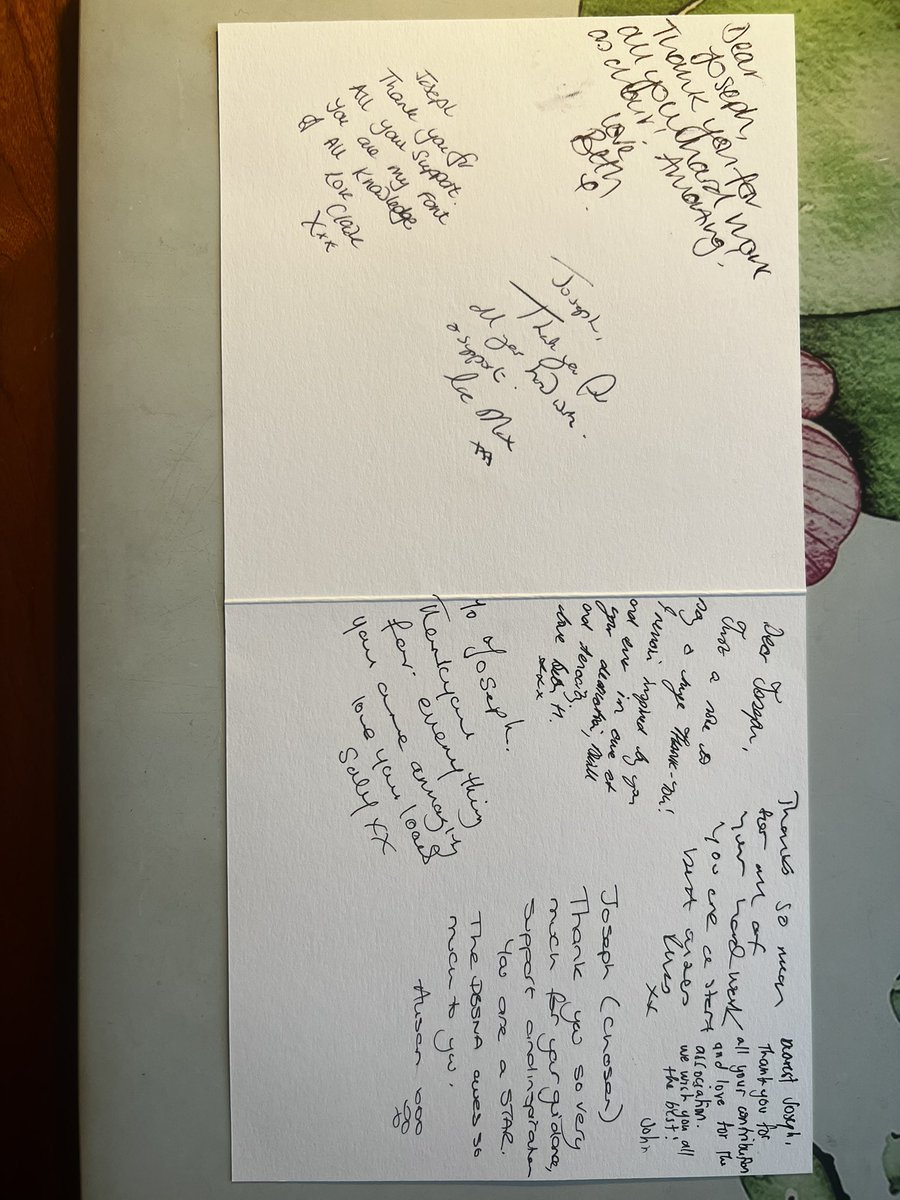 Dear
Joseph,
Thank you for
all your hard work
as chair! Amazing.
Love,
Beth
x.
Joseph
Thank you for
All your support.
You are my Font
of All Knowledge
Love Claire
Xxx
Joseph,
Thank you for
all your hard work.
& support.
xx
Dear Joseph,
Just a note to
say a huge Thank-You!
inspired by you
and
your dedication,
and tenacity.
Love Beth H.
xxx
To Joseph.
Thankyou
for everything
your are amazing
love you loads
Sally XX
Thanks so much
for all of
your hard work
You are a star
best wishes
xx
Dearest Joseph,
Thank you for
all your contribution
and love for the
association.
we wish you all
the best!
John
Joseph (chosen)
Thank you so very
much for your guidance,
support and inspiration
You are a STAR.
The DBSNA owes so
much to you.
Alison ooo